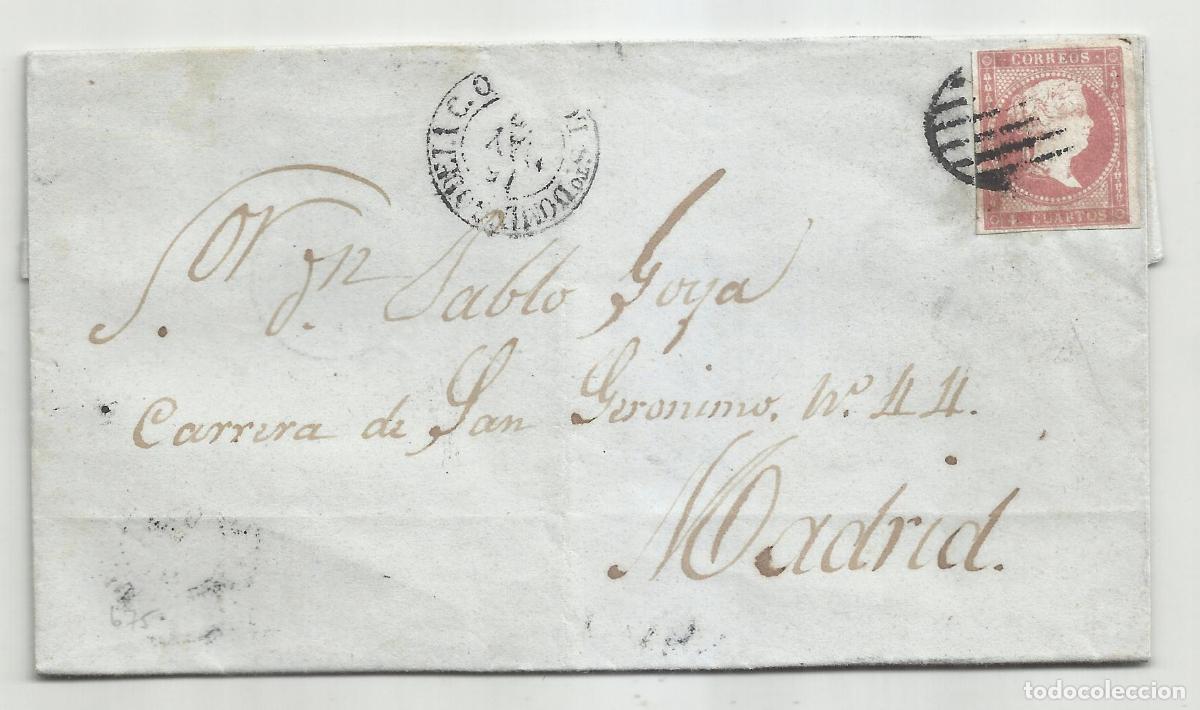 CORREOS
4 CUARTOS
S.or D.n Pablo Goya
Carrera de San Geronimo. Nº. 44.
Madrid.
675
todocoleccion